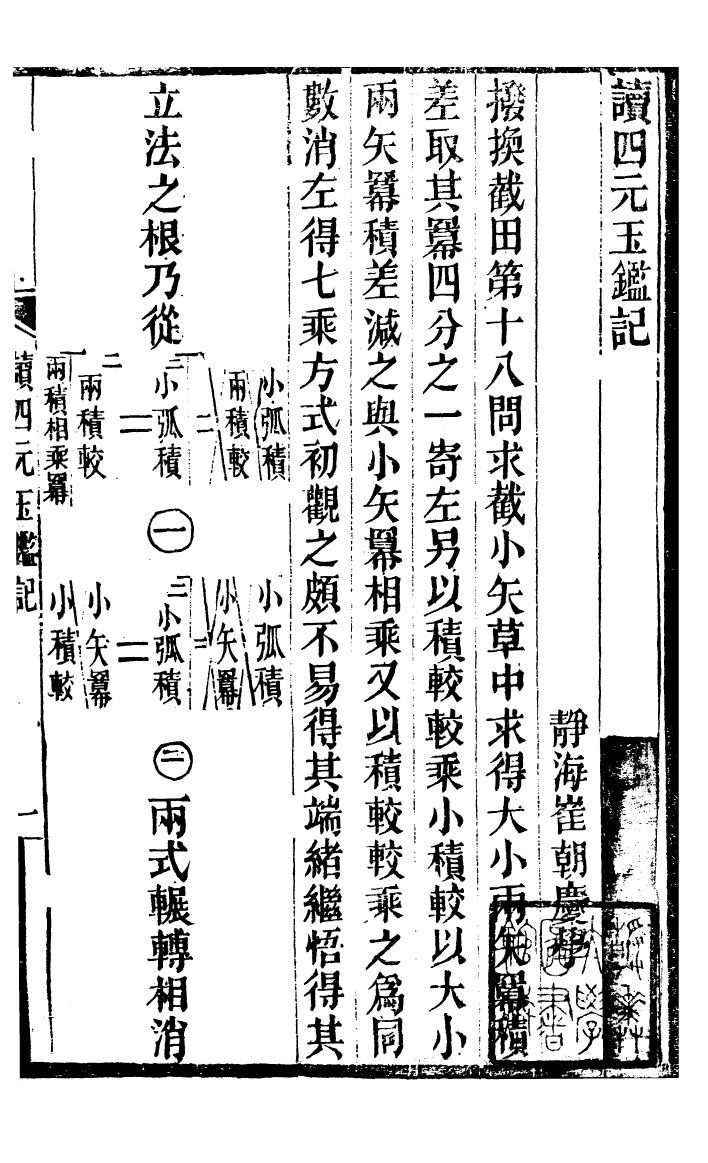 讀四元玉鑑記
靜海崔朝慶學
撥換截田第十八問求截小矢草中求得大小兩矢冪積
差取其冪四分之一寄左另以積較較乘小積較以大小
兩矢冪積差減之與小矢冪相乘又以積較較乘之爲同
數消左得七乘方式初觀之頗不易得其端緒繼悟得其
立法之根乃從
小弧積
兩積較
二
二小弧積
二
兩積較
兩積相乘冪
一
小弧積
小矢冪
二
二小弧積
二
小矢冪
小積較
二
兩式輾轉相消
讀四元玉鑑記
一